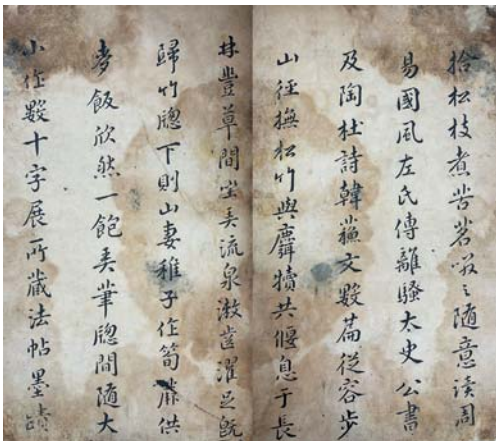 拾松枝煮苦茗啜之隨意讀周
易國風左氏傳離騷太史公書
及陶杜詩韓蘓文數篇從容步
山徑撫松竹與麛犢共偃息于長
林豐草間坐弄流泉漱齒濯足既
歸竹牕下則山妻稚子作筍蕨供
麥飯欣然一飽弄筆牕間隨大
小作數十字展所藏法帖墨蹟